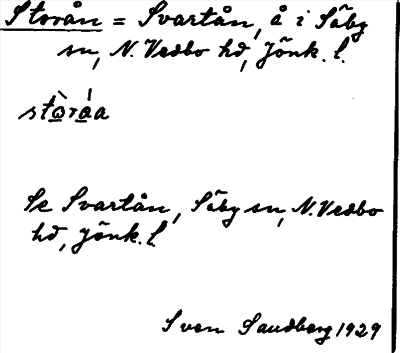 Storån = Svartån, å i Säby
sn, N. Vedbo hd, Jönk. l.
stò̱rá̱a
Se Svartån, Säby sn, N. Vedbo
hd, Jönk. l.
Sven Sandberg 1929